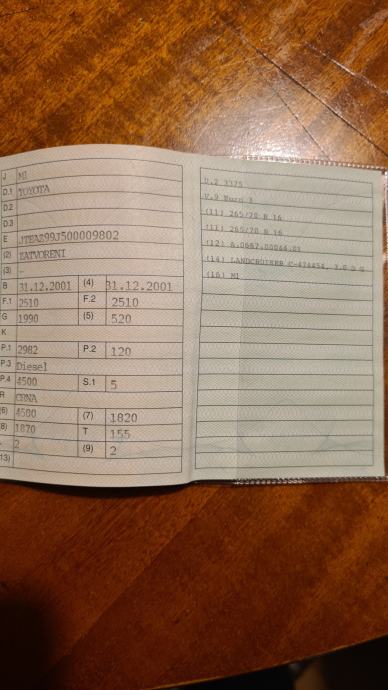 J M1
D.1 TOYOTA
D.2
D.3
E JTEAZ99J500009802
(2) ZATVORENI
(3) -
B 31.12.2001 (4) 31.12.2001
F.1 2510 F.2 2510
G 1990 (5) 520
K
P.1 2982 P.2 120
P.3 Diesel
P.4 4500 S.1 5
R CRNA
(6) 4580 (7) 1820
(8) 1870 T 155
2 (9) 2
(13)
D.2 3375
V.9 Euro 3
(11) 265/70 R 16
(11) 265/70 R 16
(12) A.0667.00044.01
(14) LANDCRUISER C-474454, 3.0 D
(16) M1